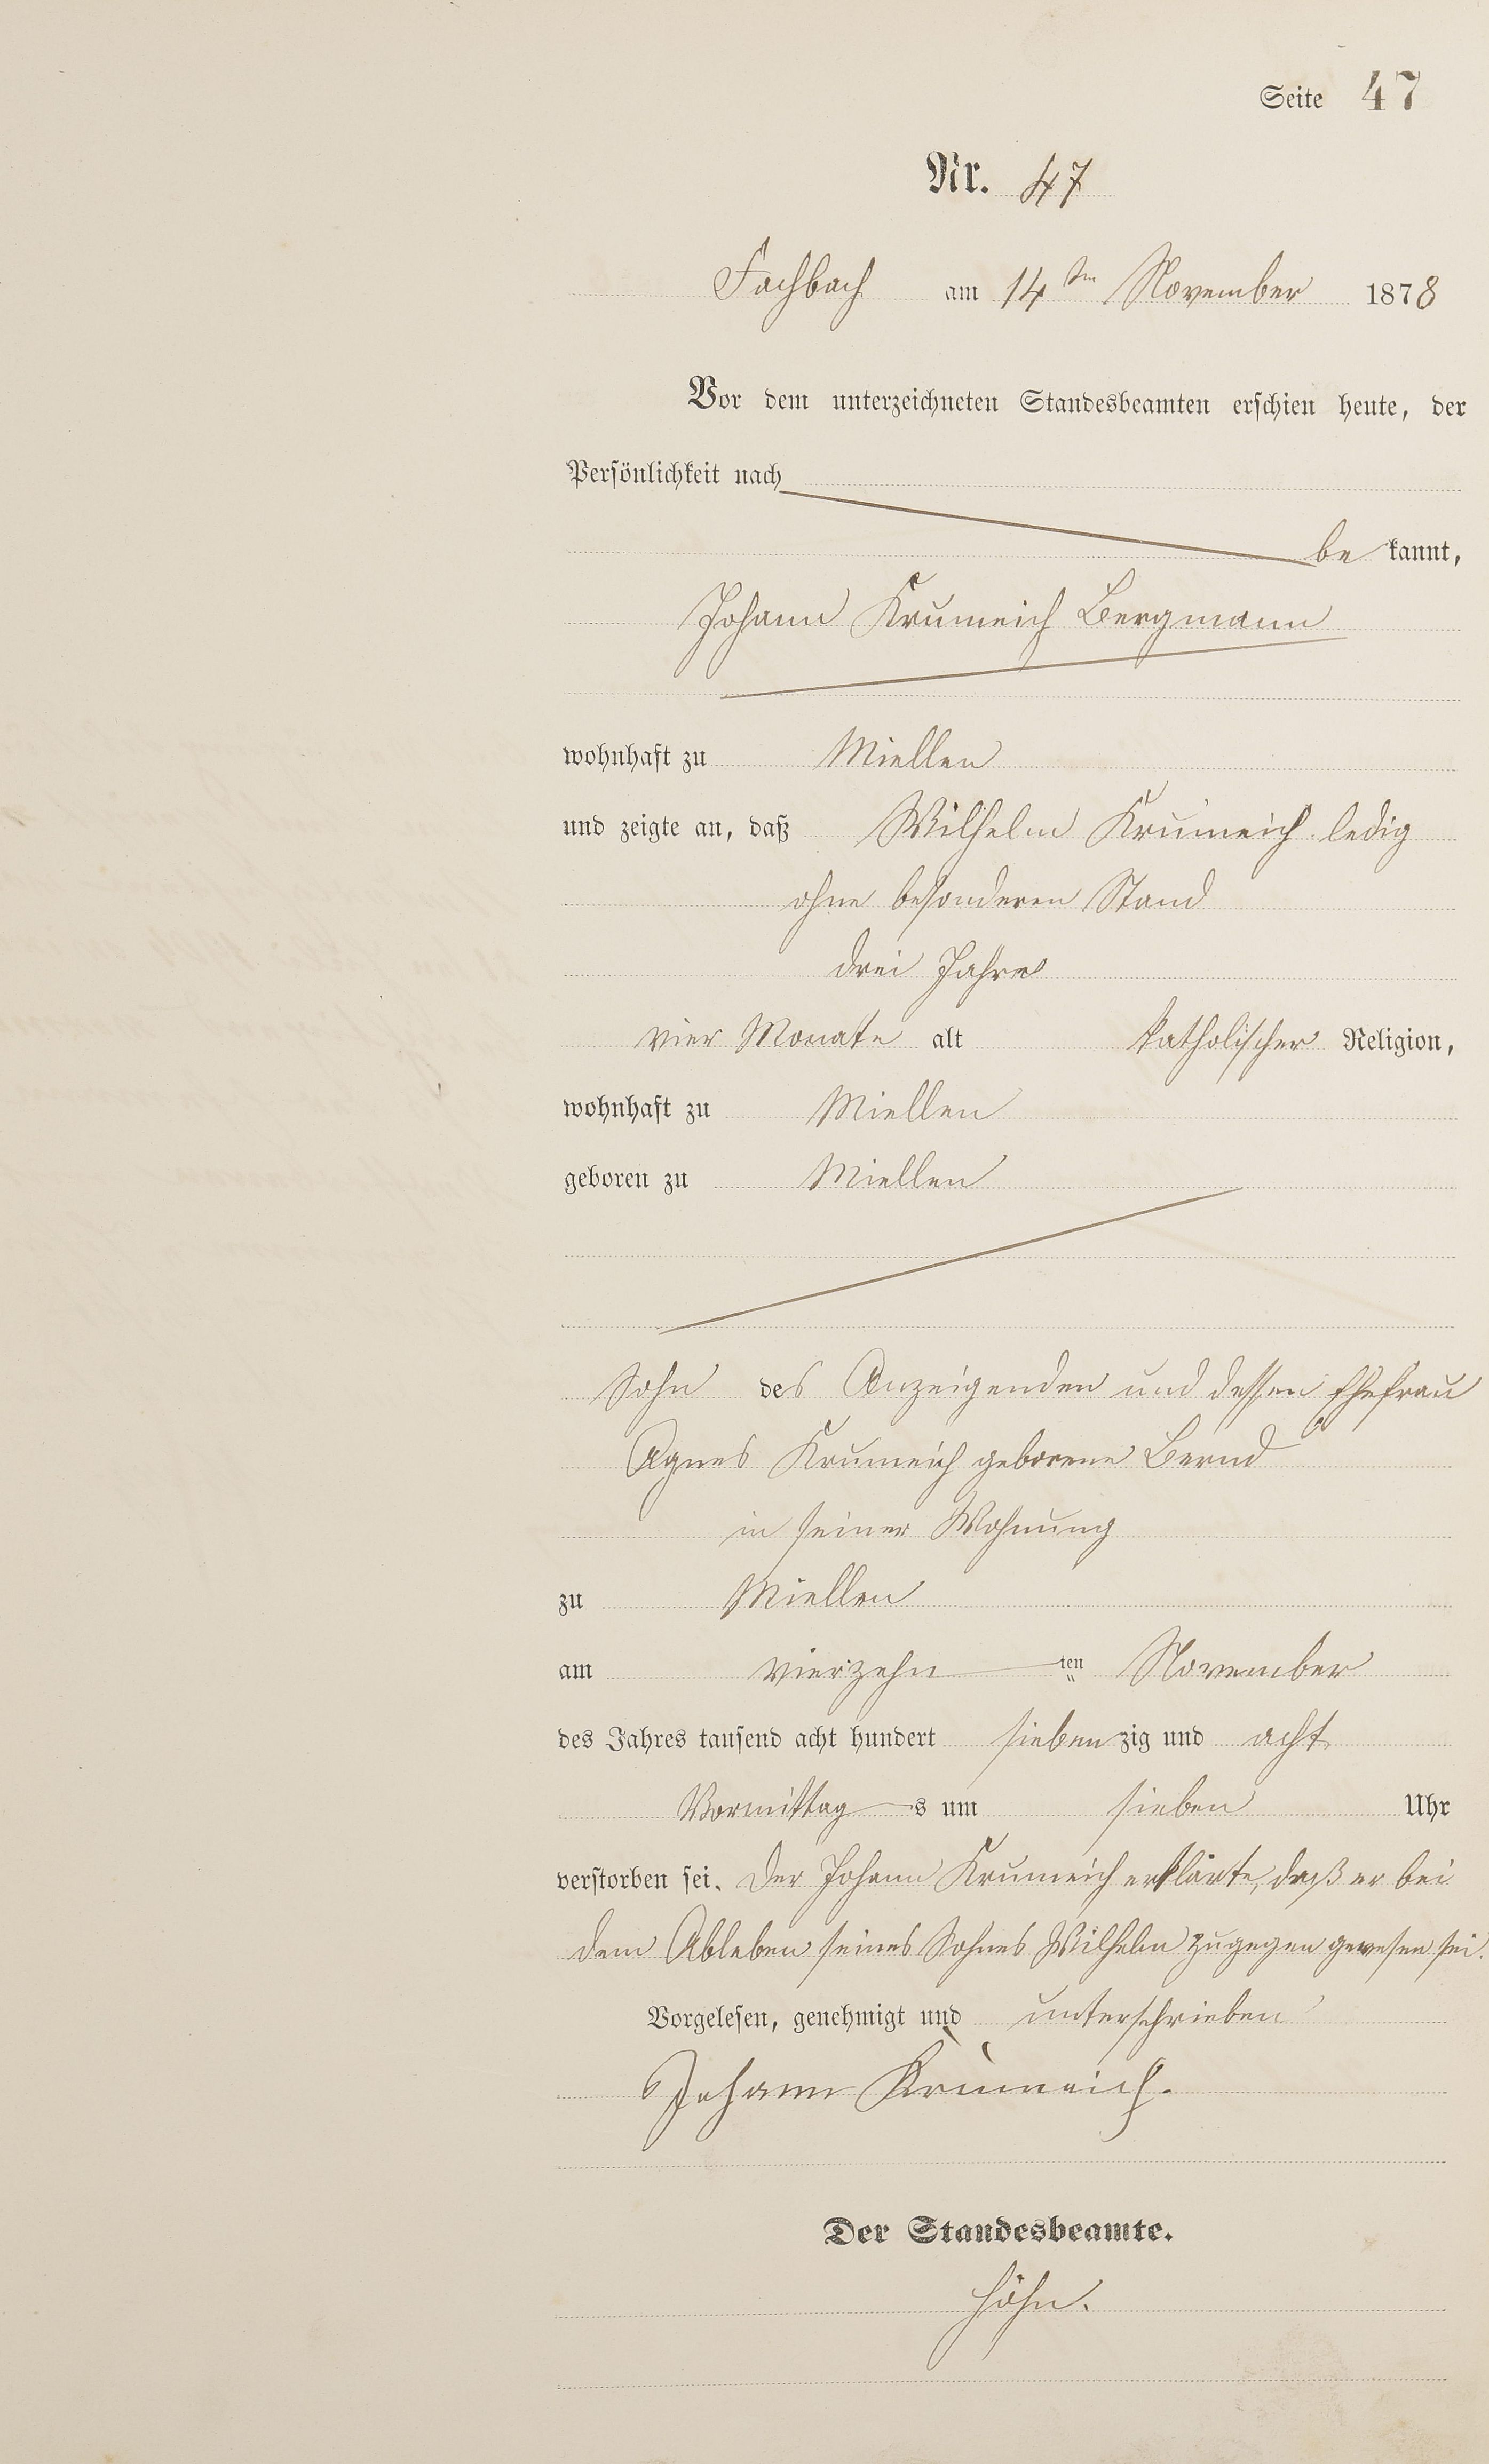 Seite 47
Nr. 47
Fachbach am 14ten November 1878
Vor dem unterzeichneten Standesbeamten erschien heute, der
Persönlichkeit nach
be kannt,
Johann Krumeich Bergmann
wohnhaft zu Miellen
und zeigte an, daß Wilhelm Krumeich ledig
ohne besonderen Stand
drei Jahre
vier Monate alt katholischer Religion,
wohnhaft zu Miellen
geboren zu Miellen
Sohn des Anzeigenden und dessen Ehefrau
Agnes Krumeich geborene Bernd
in seiner Wohnung
zu Miellen
am vierzehn ten November
des Jahres tausend acht hundert sieben zig und acht
Vormittag s um sieben Uhr
verstorben sei. Der Johann Krumeich erklärte, daß er bei
dem Ableben seines Sohnes Wilhelm zugegen gewesen sei.
Vorgelesen, genehmigt und unterschrieben
Johann Krumeich.
Der Standesbeamte.
Höhn.